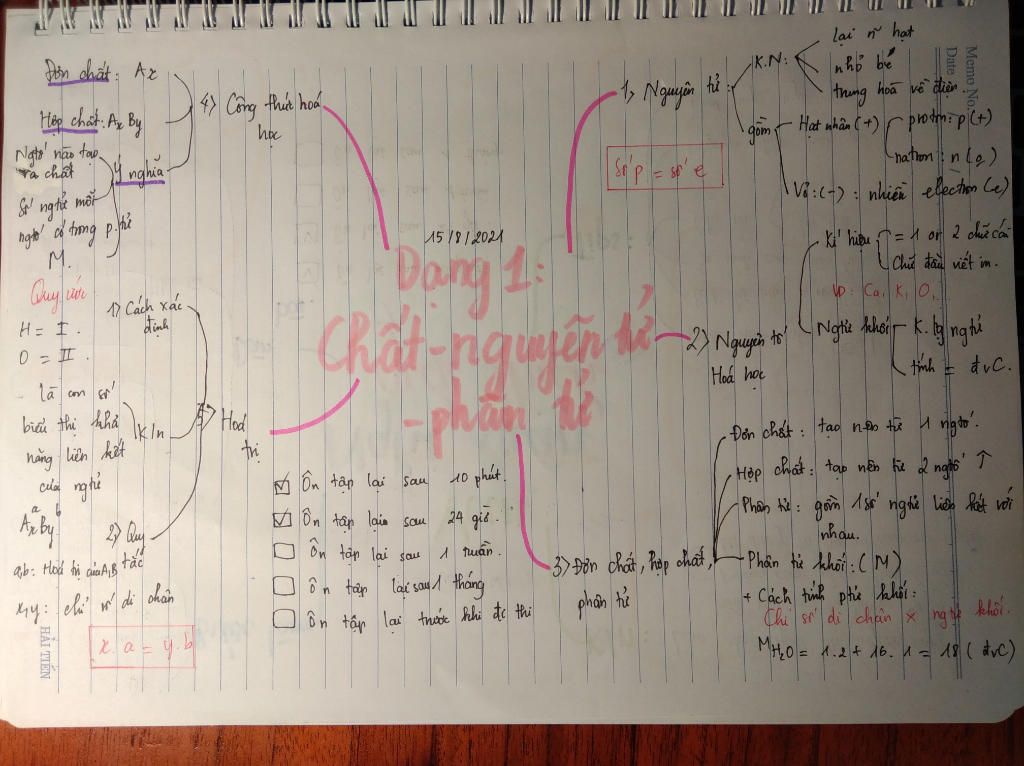 Memo No.
Date
15/8/2021
Dạng 1:
Chất-nguyên tử
-phân tử
1, Nguyên tử:
K.N:
lại n̄ hạt
nhỏ bé
trung hoà về điện.
gồm
Hạt nhân (+)
proton: p (+)
natron: n (o)
Vỏ: (-) : nhiều electron (e)
Số p = số e
2) Nguyên tố
Hoá học
Kí hiệu
= 1 or 2 chữ cái
Chữ đầu viết in.
VD: Ca, K, O,
Ngtử khối
K. lg ngtử
tính = đvC.
3) Đơn chất, hợp chất,
phân tử
Đơn chất: tạo nên từ 1 ngtố.
Hợp chất: tạo nên từ 2 ngtố ↑
Phân tử: gồm 1 số ngtử liên kết với
nhau.
Phân tử khối: (M)
+ Cách tính ptử khối:
Chỉ số di chân × ngtử khối.
MH2O = 1.2 + 16.1 = 18 (đvC)
4) Công thức hoá
học
Đơn chất: Ax
Hợp chất: AxBy
Ý nghĩa
Ngtố nào tạo
ra chất
Số ngtử mỗi
ngtố có trong p.tử
M.
5) Hoá
trị
1) Cách xác
định
Quy ước
H = I.
O = II.
K/n
là con số
biểu thị khả
năng liên kết
của ngtử
2) Quy
tắc
AxaByb
a,b: Hoá trị của A,B
x,y: chỉ số di chân
x.a = y.b
☑ Ôn tập lại sau 10 phút.
☑ Ôn tập lại sau 24 giờ.
☐ Ôn tập lại sau 1 tuần.
☐ Ôn tập lại sau 1 tháng
☐ Ôn tập lại trước khi đi thi
HẢI TIẾN